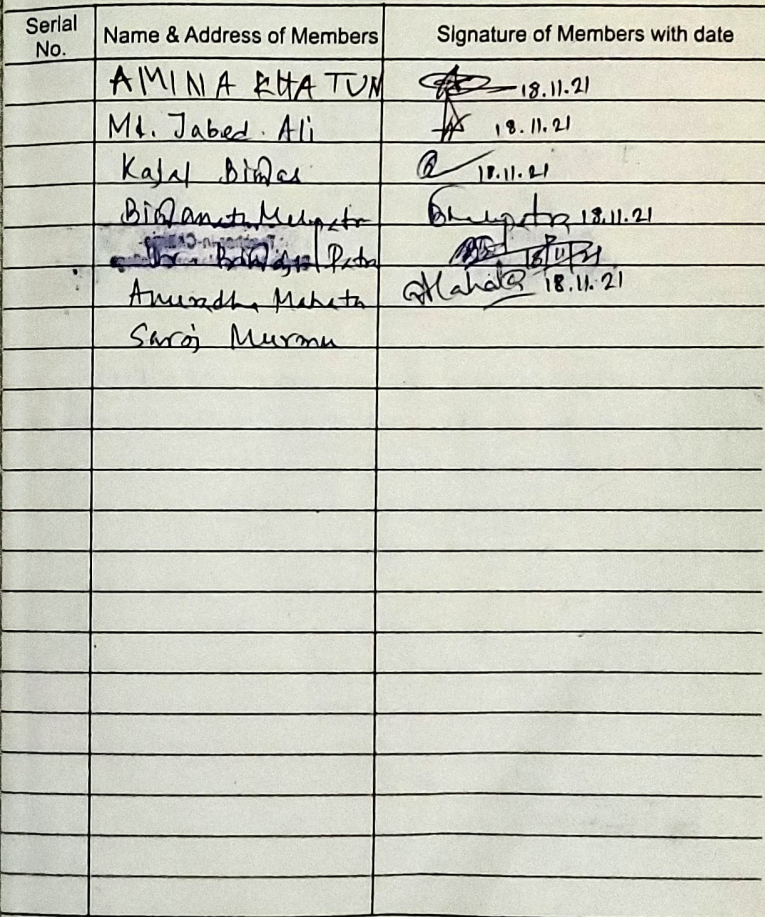 Serial No. Name & Address of Members Signature of Members with date
AMINA KHATUN 18.11.21
Md. Jabed. Ali 18.11.21
Kajal Biswas 18.11.21
18.11.21
Patra 18/11/21
Anuradha Mahata Mahata 18.11.21
Saroj Murmu